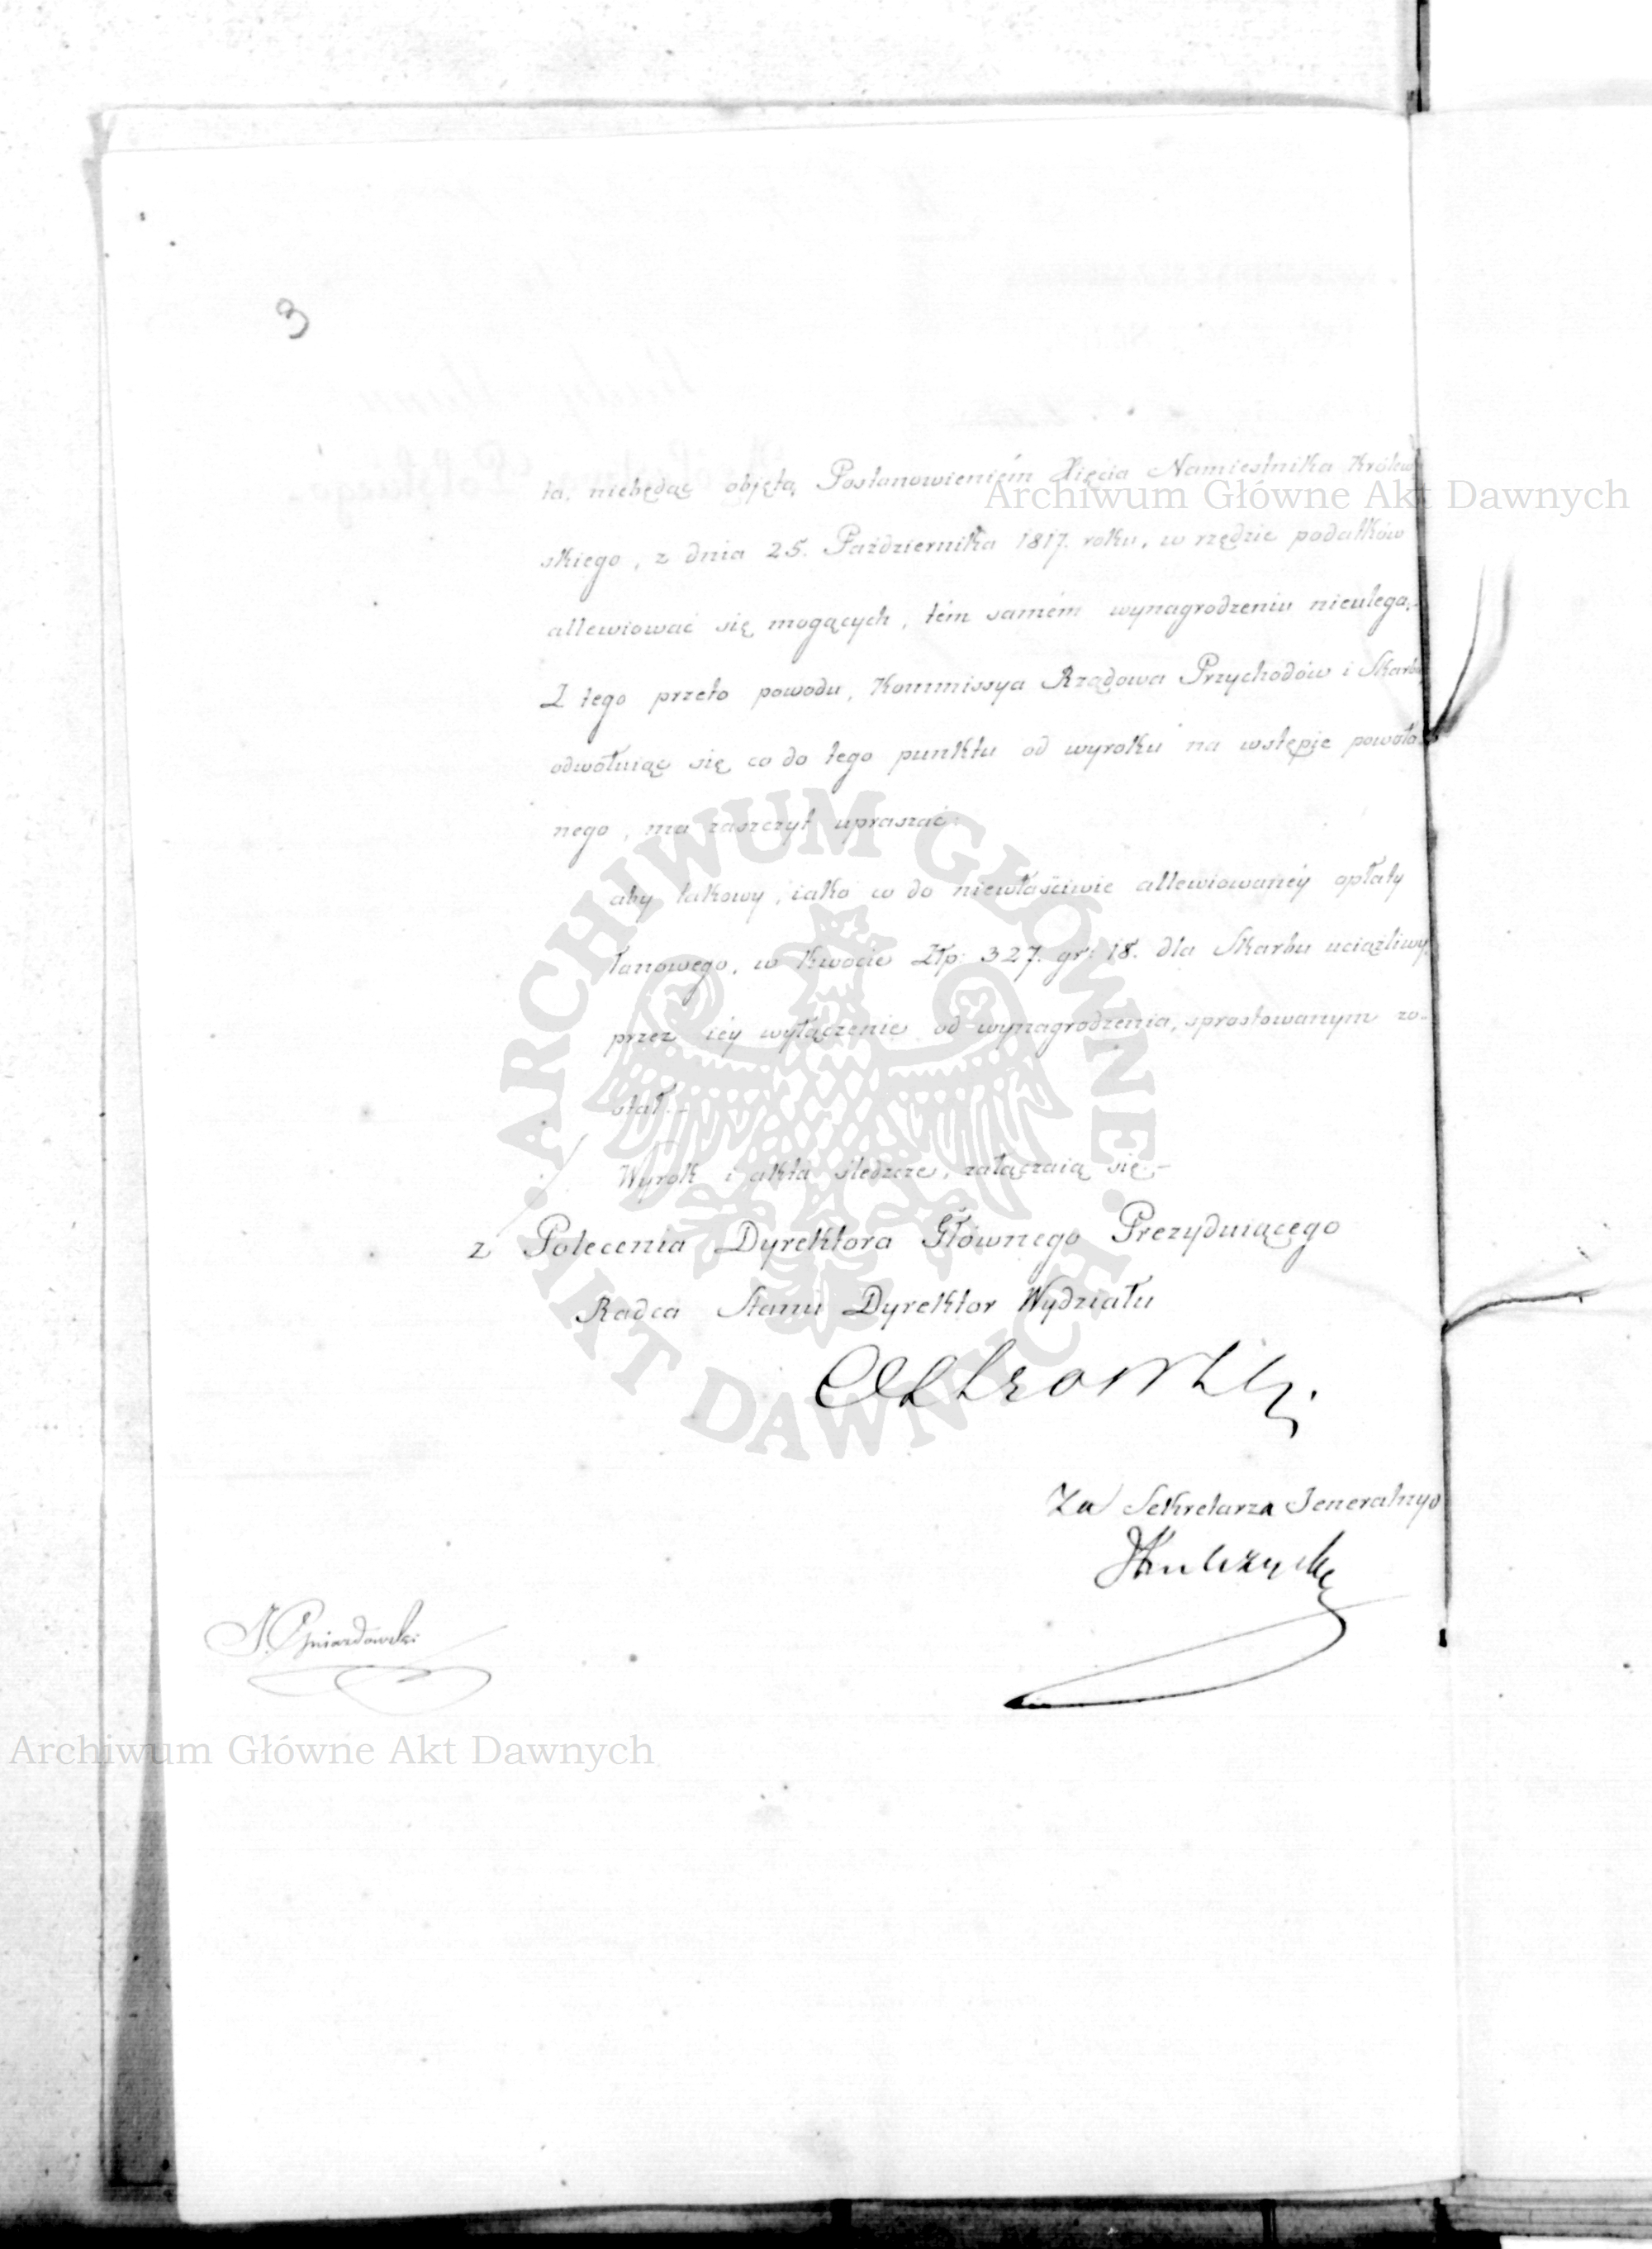 3
ta, niebędąc objętą Postanowieniem Xięcia Namiestnika Królew
Archiwum Główne Akt Dawnych
skiego, z dnia 25. Października 1817. roku, w rzędzie podatków
allewiować się mogących, tém samém wynagrodzeniu nieulega.
Z tego przeto powodu, Kommissya Rządowa Przychodów i Skarbu
odwołuiąc się co do tego punktu od wyroku na wstępie powoła-
nego, ma zaszczyt upraszać:
aby takowy, iako co do niewłaściwie allewiowanéy opłaty
łanowego, w kwocie Złp: 327. gr: 18. dla Skarbu uciążliwy,
przez iéy wyłączenie od wynagrodzenia, sprostowanym zo-
stał.-
Wyrok i akta śledcze, załączaią się.-
z Polecenia Dyrektora Głównego Prezyduiącego
Radca Stanu Dyrektor Wydziału
Za Sekretarza Jeneralnego
J. Gniazdowski
Archiwum Główne Akt Dawnych
ARCHIWUM GŁÓWNE AKT DAWNYCH